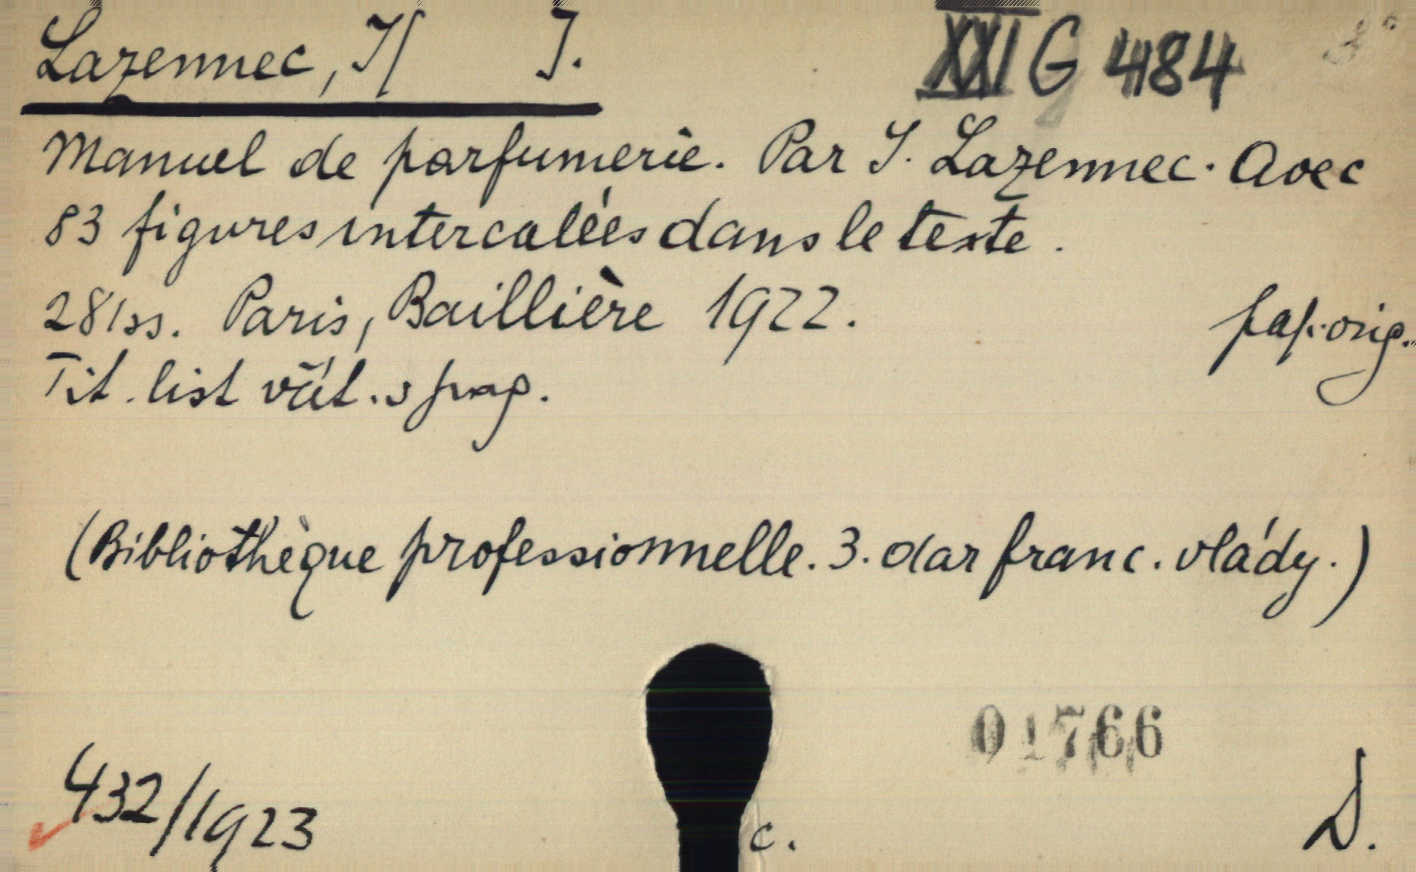 Lazennec, I[ ]. XXI G 484
Manuel de parfumerie. Par I. Lazennec. Avec
83 figures intercalées dans le texte.
281ss. Paris, Baillière 1922. pap. orig.
Tit. list
(Bibliothèque professionnelle. 3. dar franc. vlády.)
01766
432/1923 c. D.